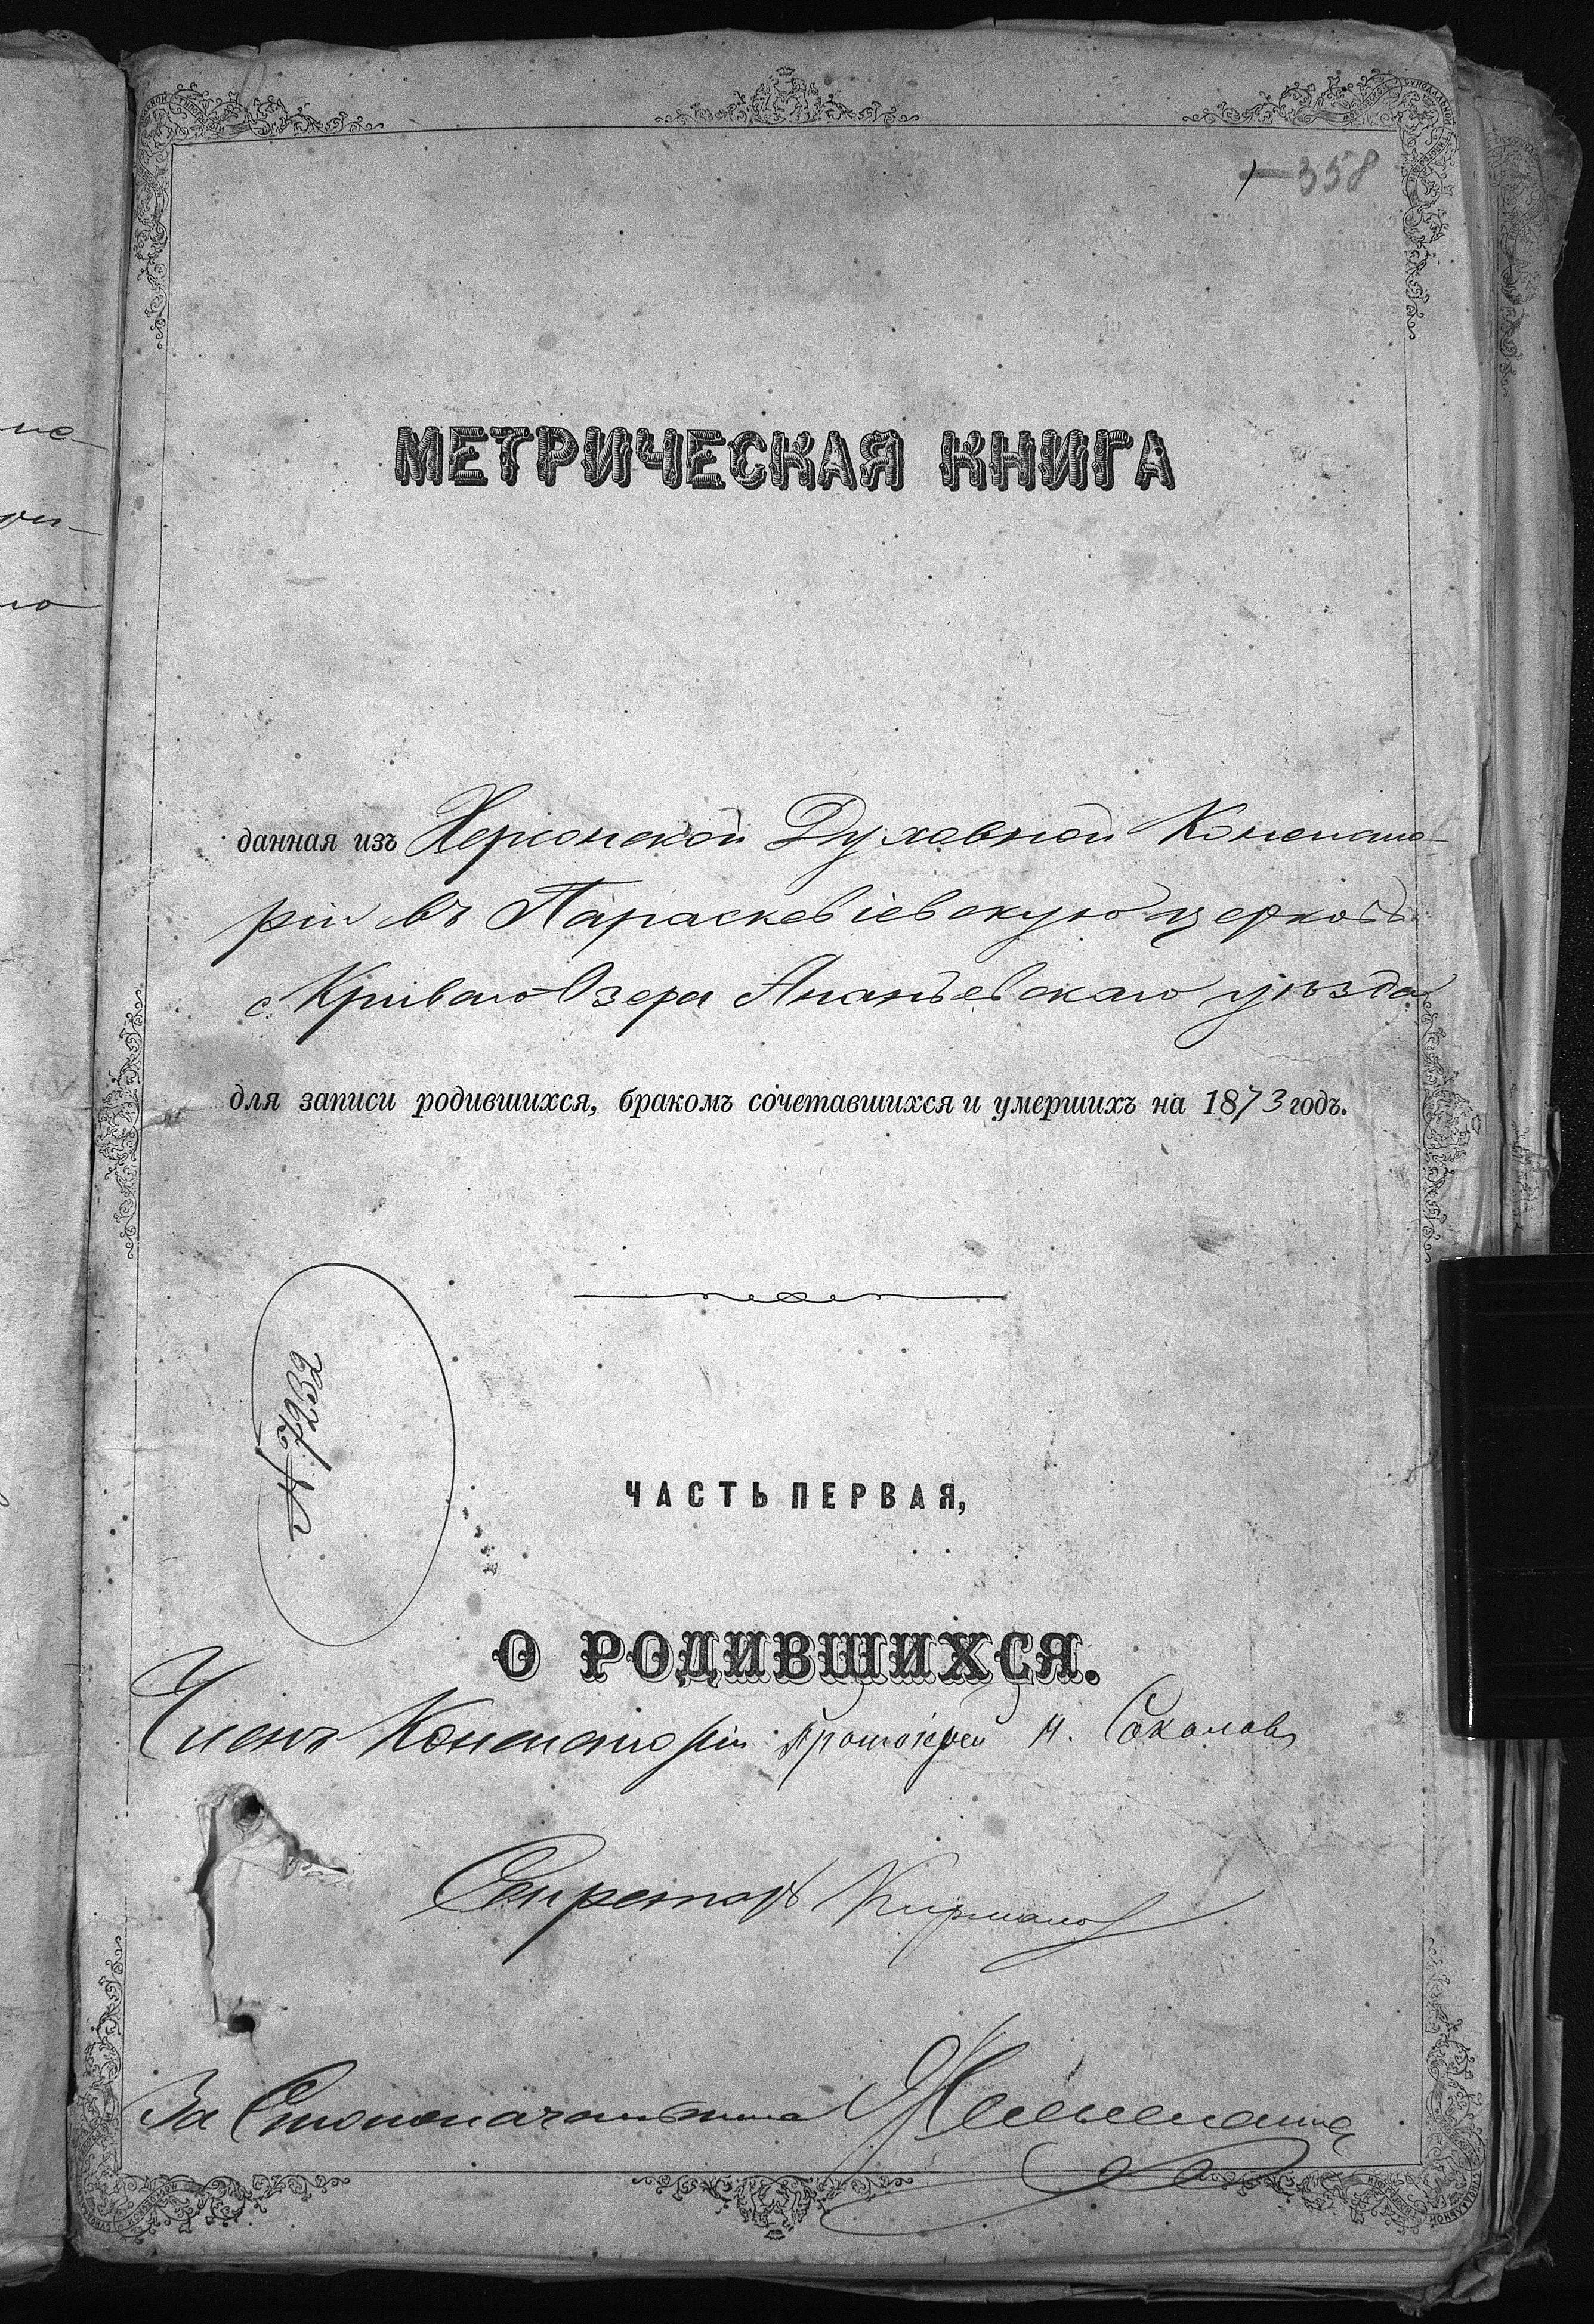 358
МЕТРИЧЕСКАЯ КНИГА
данная изъ Херсонской Духовной Консисто-
ріи въ Параскевіевскую церковь
с. Криваго Озера Ананьевскаго уѣзда
для записи родившихся, бракомъ сочетавшихся и умершихъ на 1873 годъ.
№ 7232
ЧАСТЬ ПЕРВАЯ,
О РОДИВШИХСЯ.
Членъ Консисторіи Протоіерей Н. Соколовъ
Секретарь
За Столоначальника